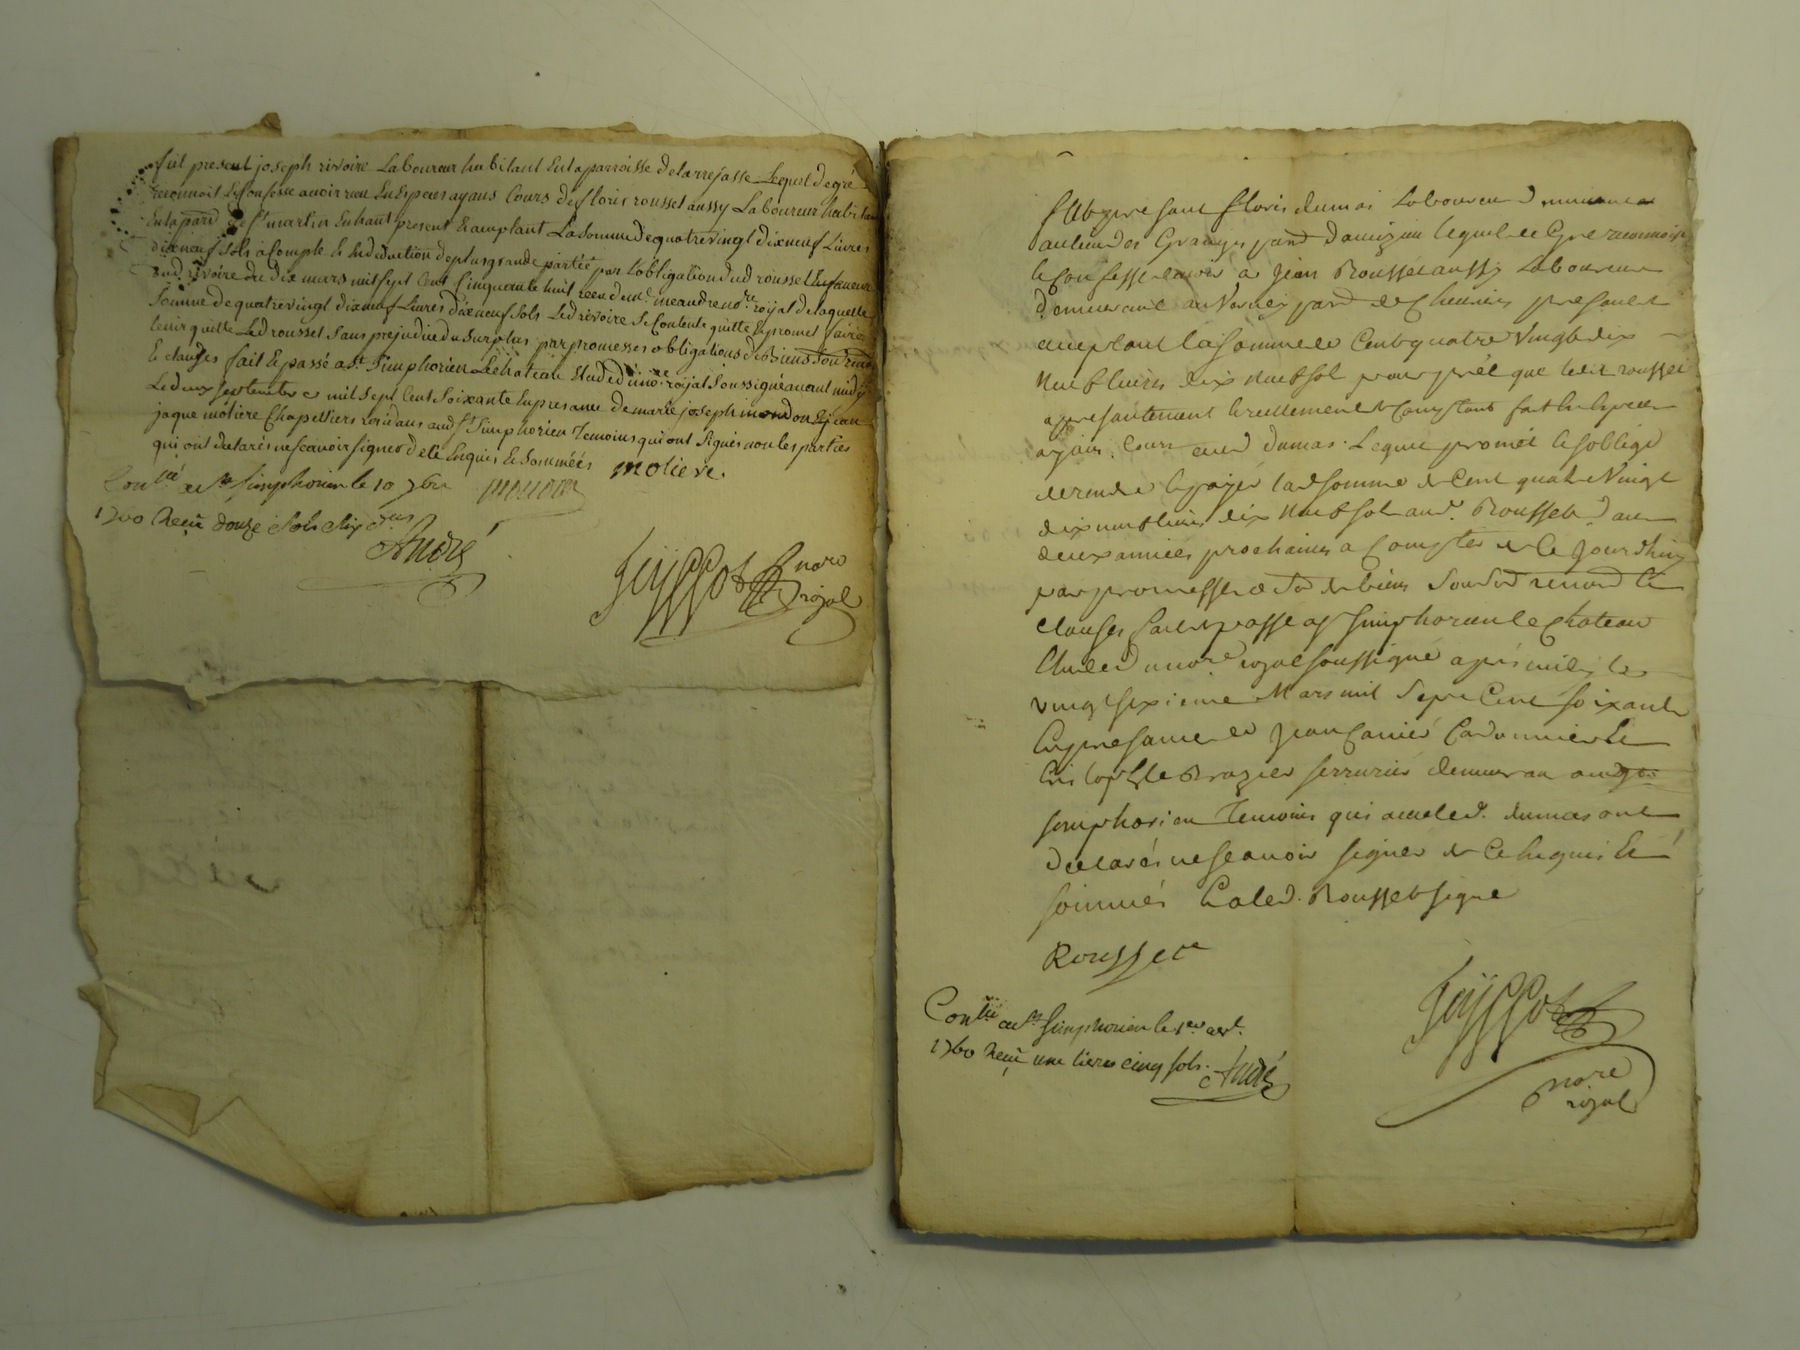 fut present joseph rivoire Laboureur habitant En la parroisse de larrejasse Lequel de gré
reconnoit Et Confesse avoir reçu En Especes ayans Cours de floris rousset aussy Laboureur habitan
En la parr. de st martin En haut present Et acceptant La Somme de quatrevingt dixneuf Livres
dixneuf Sols à Compte Et En deduction de plus grande partie par L'obligation dud rousset En faveur
dud rivoire du dix mars mil sept Cent Cinquante huit receu de me meandre nore royal de laquelle
Somme de quatrevingt dixneuf Livres dixneuf Sols Led rivoire Se Contente quitte Et promet faire
tenir quitte Led rousset Sans prejudice du Surplus par promesses obligations de Biens Soub renon
Et clauses fait Et passé a st Simphorien Le chateau Etude du nore royal Soussigné avant midy
Le deux septembre mil sept Cent Soixante En presance de marie joseph mondon Et jean
jaque moliere Chapelliers residans aud st Simphorien Temoins qui ont Signés non les parties
qui ont declarés ne Scavoir signer de ce Enquis Et Sommées
moliere.
mondon
Conllé a st Simphorien le 10 7bre
1760 Reçu douze Sols Six drs
André
nore
royal
fut present floris dumas Laboureur demeurant
au lieu des Granges parr d'aveizieu lequel de Gré reconnoit
Et Confesse devoir a Jean Rousset aussy Laboureur
demeurant au Vernay parr de Chevrier present Et
acceptant la Somme de Cent quatre Vingt dix
Neuf livres dix Neuf Sol pour prêt que led rousset
a presentement Et reellement Comptant fait En Espece
ayans Cours aud dumas. Lequel promet Et Soblige
de rendre Et payer lad Somme de Cent quatre Vingt
dix neuf livres dix Neuf Sol aud. Rousset dans
deux années prochaines a Compter de Ce Jourdhuy
par promesse obon de biens Soub renon Et
Clauses fait Et passé a st Simphorien le Chateau
Etude du nore royal Soussigné aprés midy le
vingt sixieme Mars mil Sept Cent Soixante
En presance de Jean Canier Cordonnier Et
Cristophle Brazier serrurier demeuran aud st
Simphorien Temoins qui avec led. dumas ont
declarés ne Scavoir signer de Ce Enquis Et
sommés Et aled. Rousset signé
Rousset
Conllé a st Simphorien le 1er avl.
1760 Reçu une livres cinq sols. André
nore
royal